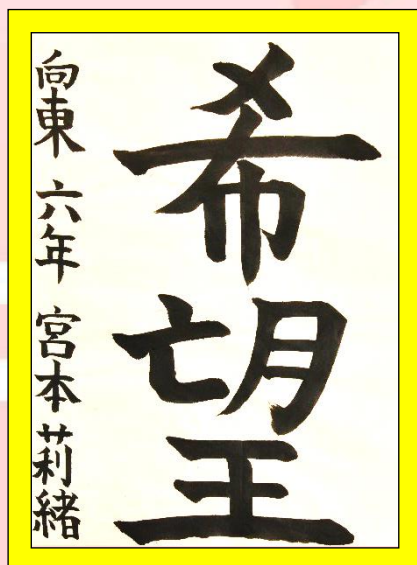 希望
向東 六年 宮本 莉緒